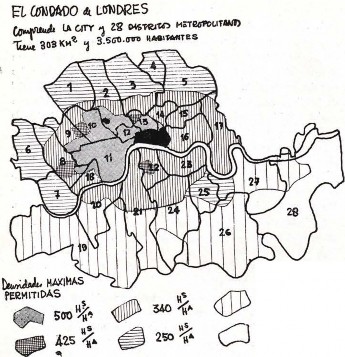 EL CONDADO de LONDRES
Comprende LA CITY y 28 DISTRITOS METROPOLITANOS
Tiene 303 KM² y 3.500.000 HABITANTES
4
3
5
1
2
14
15
10
9
13
17
6
12
16
8
11
22
23
18
7
27
25
20
21
24
28
26
19
Densidades MAXIMAS
PERMITIDAS
500 HS/Ha
340 HS/HA
425 HS/HA
250 HS/HA